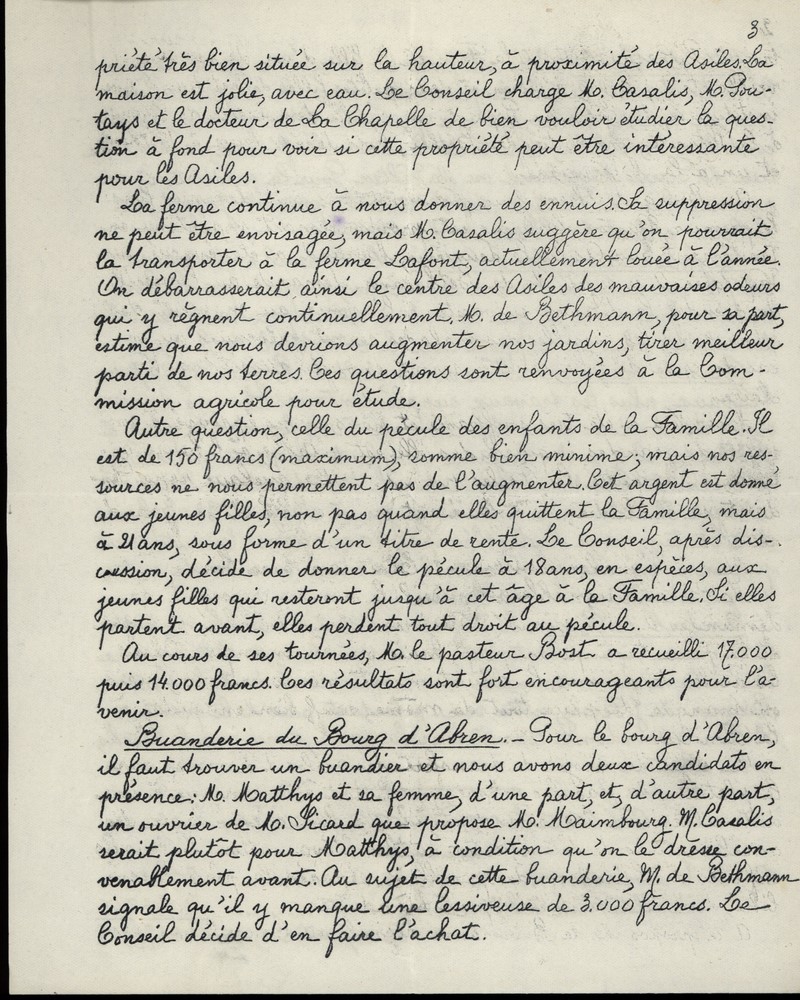 3
priété très bien située sur la hauteur, à proximité des Asiles. La
maison est jolie, avec eau. Le Conseil charge M. Casalis, M. Pou-
tays et le docteur de La Chapelle de bien vouloir étudier la ques-
tion à fond pour voir si cette propriété peut être intéressante
pour les Asiles.
La ferme continue à nous donner des ennuis. Sa suppression
ne peut être envisagée, mais M. Casalis suggère qu'on pourrait
la transporter à la ferme Lafont, actuellement louée à l'année.
On débarrasserait ainsi le centre des Asiles des mauvaises odeurs
qui y règnent continuellement. M. de Bethmann, pour sa part,
estime que nous devrions augmenter nos jardins, tirer meilleur
parti de nos terres. Ces questions sont renvoyées à la Com-
mission agricole pour étude.
Autre question, celle du pécule des enfants de la Famille. Il
est de 150 francs (maximum), somme bien minime; mais nos res-
sources ne nous permettent pas de l'augmenter. Cet argent est donné
aux jeunes filles, non pas quand elles quittent la Famille, mais
à 21 ans, sous forme d'un titre de rente. Le Conseil, après dis-
cussion, décide de donner le pécule à 18 ans, en espèces, aux
jeunes filles qui resteront jusqu'à cet âge à la Famille. Si elles
partent avant, elles perdent tout droit au pécule.
Au cours de ses tournées, M. le pasteur Bost a recueilli 17.000
puis 14.000 francs. Ces résultats sont fort encourageants pour l'a-
venir.
Buanderie du Bourg d'Abren. - Pour le bourg d'Abren,
il faut trouver un buandier et nous avons deux candidats en
présence: M. Matthys et sa femme, d'une part, et, d'autre part,
un ouvrier de M. Sicard que propose M. Maimbourg. M. Casalis
serait plutôt pour Matthys, à condition qu'on le dresse con-
venablement avant. Au sujet de cette buanderie, M. de Bethmann
signale qu'il y manque une lessiveuse de 3.000 francs. Le
Conseil décide d'en faire l'achat.